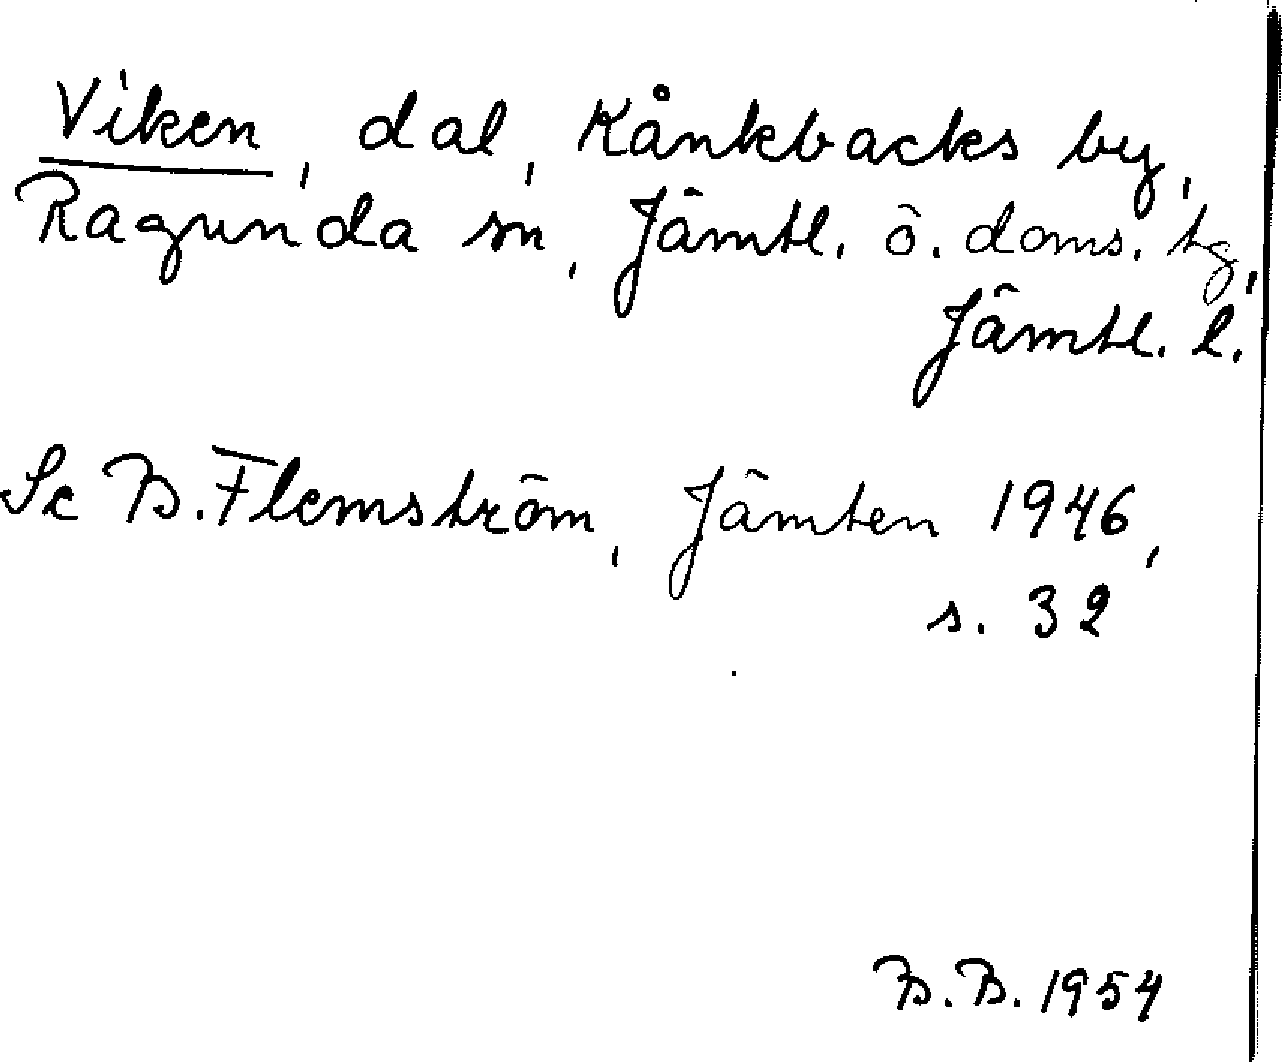 Viken, dal, Kånkbacks by,
Ragunda sn, Jämtl. ö. doms. tg,
Jämtl. l.
Se B. Flemström, Jämten 1946,
s. 32
B.B. 1954